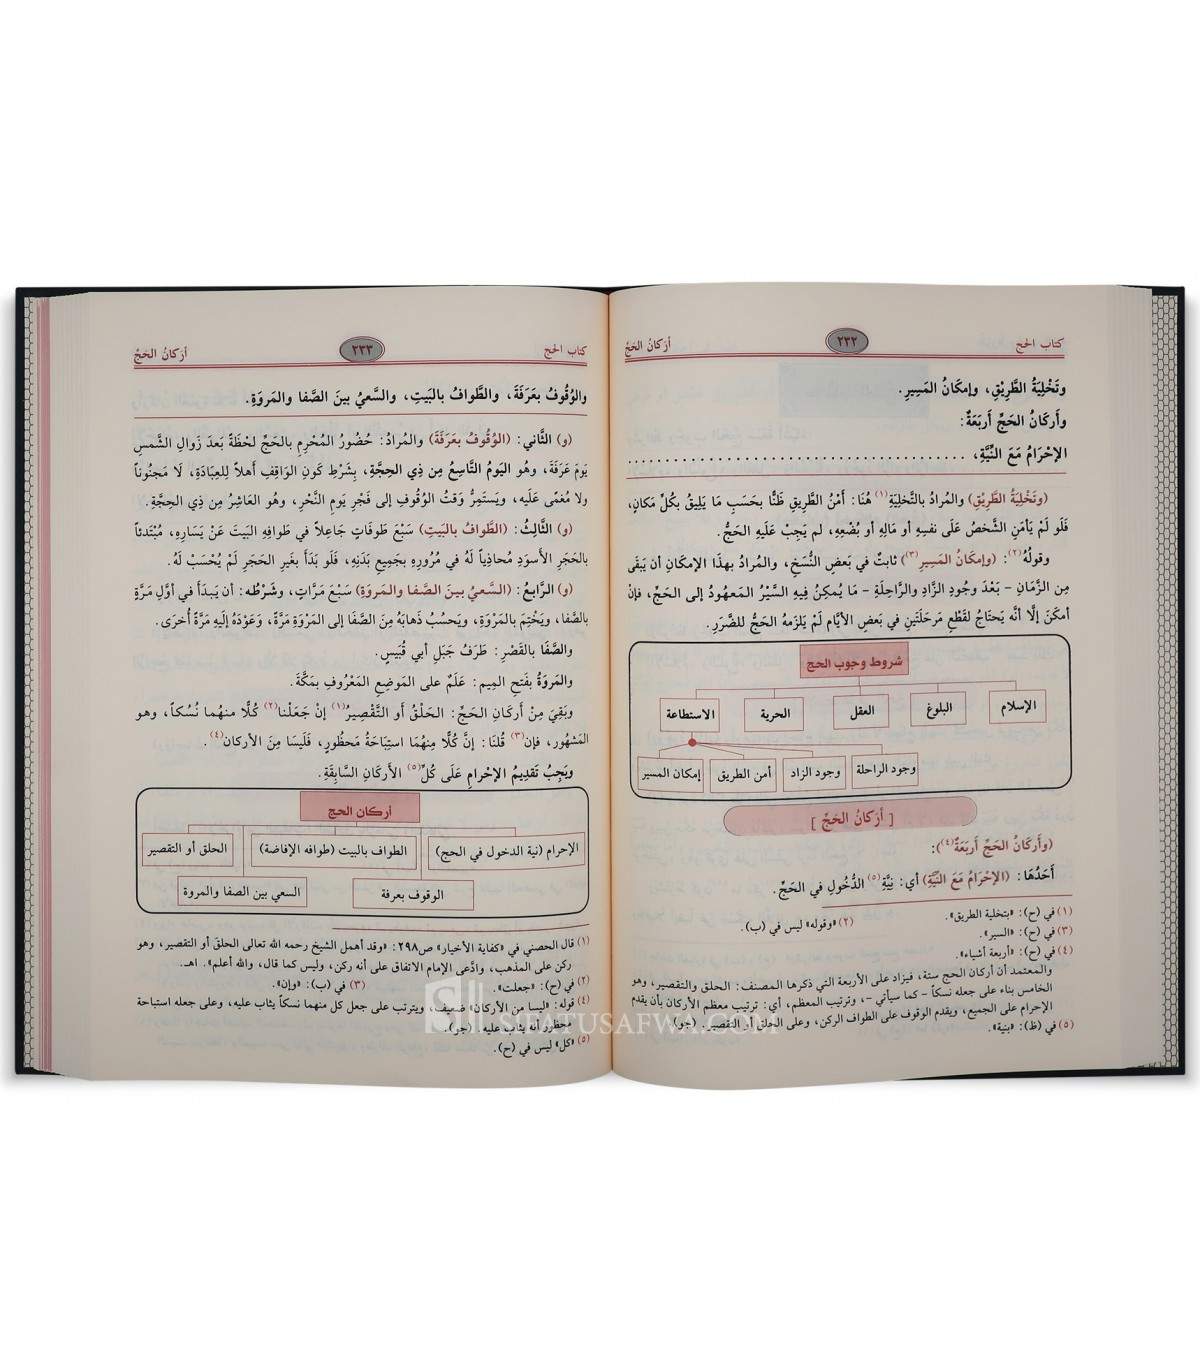 كتاب الحج ٢٣٢ أركانُ الحَجِّ
وتَخْلِيَةُ الطَّرِيْقِ، وإمكَانُ المَسِيرِ.
وأَركَانُ الحَجِّ أَربَعَةٌ:
الإحْرَامُ مَعَ النِّيَّةِ، ........................................
(وتَخْلِيَةُ الطَّرِيْقِ) والمُرادُ بالتَّخلِيَةِ(١) هُنَا: أَمْنُ الطَّرِيقِ ظَنًّا بحَسَبِ مَا يَلِيقُ بكُلِّ مَكانٍ،
فَلَو لَمْ يَأمَنِ الشَّخصُ عَلَى نفسِهِ أو مَالِهِ أو بُضْعِهِ، لم يَجِبْ عَلَيهِ الحَجُّ.
وقولُهُ(٢): (وإمكَانُ المَسِيرِ(٣)) ثابتٌ في بَعضِ النُّسَخِ، والمُرادُ بهذَا الإمكَانِ أن يَبقَى
مِن الزَّمَانِ - بَعْدَ وجُودِ الزَّادِ والرَّاحِلَةِ - مَا يُمكِنُ فِيهِ السَّيْرُ المَعهُودُ إلى الحَجِّ، فإنْ
أمكَنَ إلَّا أنَّه يَحتَاجُ لقَطْعِ مَرحَلَتَينِ في بَعضِ الأيَّامِ لَمْ يَلزَمهُ الحَجُّ للضَّرَرِ.
شروط وجوب الحج
الإسلام البلوغ العقل الحرية الاستطاعة
وجود الراحلة وجود الزاد أمن الطريق إمكان المسير
[ أركَانُ الحَجِّ ]
(وأَركَانُ الحَجِّ أَربَعَةٌ(٤)):
أَحَدُهَا: (الإحْرَامُ مَعَ النِّيَّةِ) أي: نِيَّةِ(٥) الدُّخُولِ في الحَجِّ.
(١) في (ح): «بتخلية الطريق». (٢) «وقوله» ليس في (ب).
(٣) في (ح): «السير».
(٤) في (ح): «أربعة أشياء».
والمعتمد أن أركان الحج ستة، فيزاد على الأربعة التي ذكرها المصنف: الحلق والتقصير، وهو
الخامس بناء على جعله نسكاً - كما سيأتي -، وترتيب المعظم، أي: ترتيب معظم الأركان بأن يقدم
الإحرام على الجميع، ويقدم الوقوف على الطواف الركن، وعلى الحلق أو التقصير. (جو)
(٥) في (ظ): «بنية».
كتاب الحج ٢٣٣ أركانُ الحَجِّ
والوُقُوفُ بعَرَفَةَ، والطَّوافُ بالبَيتِ، والسَّعيُ بينَ الصَّفا والمَروَةِ.
(و) الثَّاني: (الوُقُوفُ بعَرَفَةَ) والمُرادُ: حُضُورُ المُحْرِمِ بالحَجِّ لحْظَةً بَعدَ زَوالِ الشَّمسِ
يَومَ عَرَفَةَ، وهُو اليَومُ التَّاسِعُ مِن ذِي الحِجَّةِ، بِشَرْطِ كَونِ الوَاقِفِ أهلاً لِلعِبَادَةِ، لَا مَجنُوناً
ولا مُغمًى عَلَيه، ويَستَمِرُّ وَقتُ الوُقُوفِ إلى فَجْرِ يَومِ النَّحْرِ، وهُو العَاشِرُ مِن ذي الحِجَّةِ.
(و) الثَّالِثُ: (الطَّوافُ بالبَيتِ) سَبْعَ طَوفَاتٍ جَاعِلاً في طَوافِهِ البَيتَ عَنْ يَسَارِهِ، مُبْتَدئاً
بالحَجَرِ الأسوَدِ مُحاذِياً لَهُ في مُرُورِهِ بجَميعِ بَدَنِهِ، فَلَو بَدَأَ بغَيرِ الحَجَرِ لَمْ يُحْسَبْ لَهُ.
(و) الرَّابعُ: (السَّعيُ بينَ الصَّفا والمَروَةِ) سَبْعَ مَرَّاتٍ، وشَرْطُه: أن يَبدَأَ في أوَّلِ مَرَّةٍ
بالصَّفا، ويَخْتِمَ بالمَرْوَةِ، ويَحسُبُ ذَهابَهُ مِنَ الصَّفَا إلى المَرْوَةِ مَرَّةً، وعَوْدَهُ إلَيهِ مَرَّةً أُخرَى.
والصَّفَا بالقَصْرِ: طَرَفُ جَبَلِ أبي قُبَيْسٍ.
والمَروَةُ بفَتحِ المِيمِ: عَلَمٌ على المَوضِعِ المَعْرُوفِ بمَكَّةَ.
وبَقِيَ مِنْ أركَانِ الحَجِّ: الحَلْقُ أو التَّقْصِيرُ(١) إنْ جَعَلْنا(٢) كُلًّا منهُما نُسُكاً، وهو
المَشهُور، فإن(٣) قُلنَا: إنَّ كُلًّا مِنهُمَا استِبَاحَةُ مَحظُورٍ، فَلَيسَا مِنَ الأركان(٤).
ويَجِبُ تَقدِيمُ الإحْرامِ عَلَى كُلِّ(٥) الأركَانِ السَّابِقَةِ.
أركان الحج
الإحرام (نية الدخول في الحج) الطواف بالبيت (طوافه الإفاضة) الحلق أو التقصير
الوقوف بعرفة السعي بين الصفا والمروة
(١) قال الحصني في «كفاية الأخيار» ص٢٩٨: «وقد أهمل الشيخ رحمه الله تعالى الحلق أو التقصير، وهو
ركن على المذهب، وادَّعى الإمام الاتفاق على أنه ركن، وليس كما قال، والله أعلم». اهـ.
(٢) في (ح): «جعلت». (٣) في (ب): «وإن».
(٤) قوله: «ليسا من الأركان» ضعيف. ويترتب على جعل كل منهما نسكاً يثاب عليه، وعلى جعله استباحة
محظور أنه يثاب عليه. (جو).
(٥) «كل» ليس في (ح).
STATUSAFWA.COM